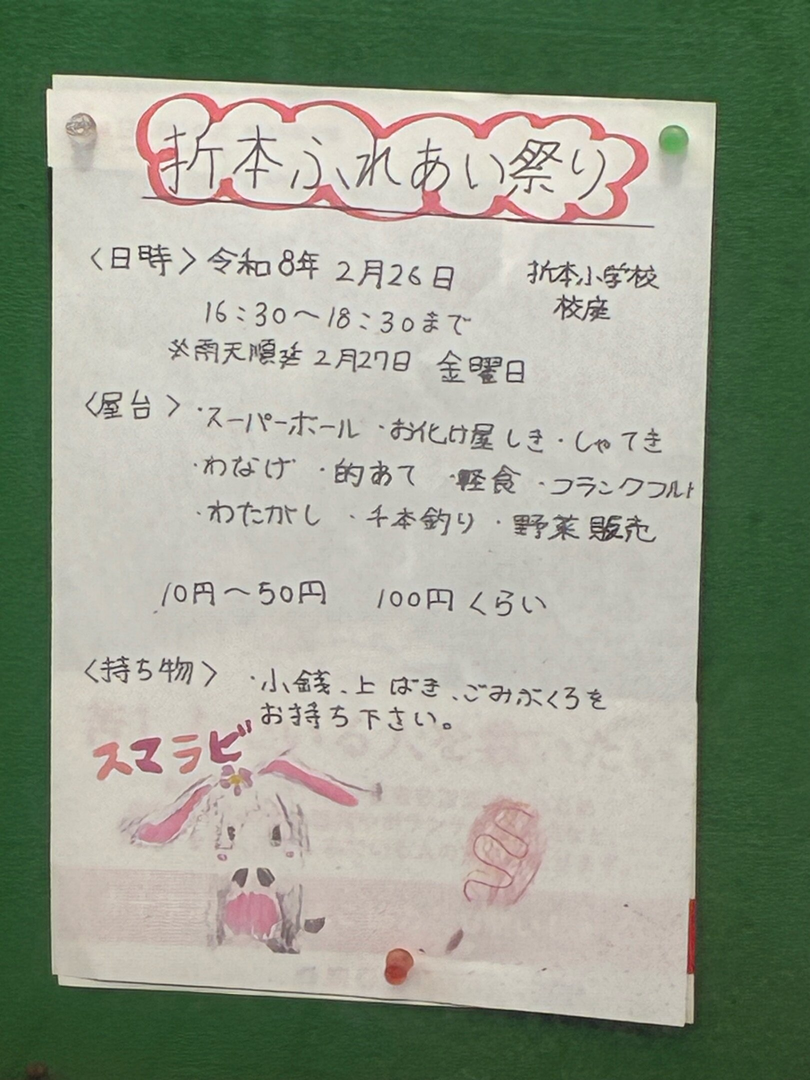 折本ふれあい祭り
〈日時〉令和8年 2月26日
折本小学校
校庭
16:30～18:30まで
※雨天順延 2月27日 金曜日
〈屋台〉・スーパーボール ・お化け屋しき・しゃてき
・わなげ ・的あて ・軽食 ・フランクフルト
・わたがし ・千本釣り ・野菜販売
10円～50円 100円くらい
〈持ち物〉 ・小銭、上ばき、ごみぶくろを
お持ち下さい。
スマラビ